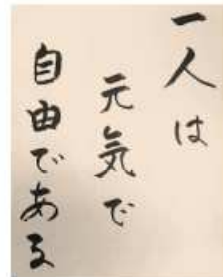 一人は
元気で
自由である